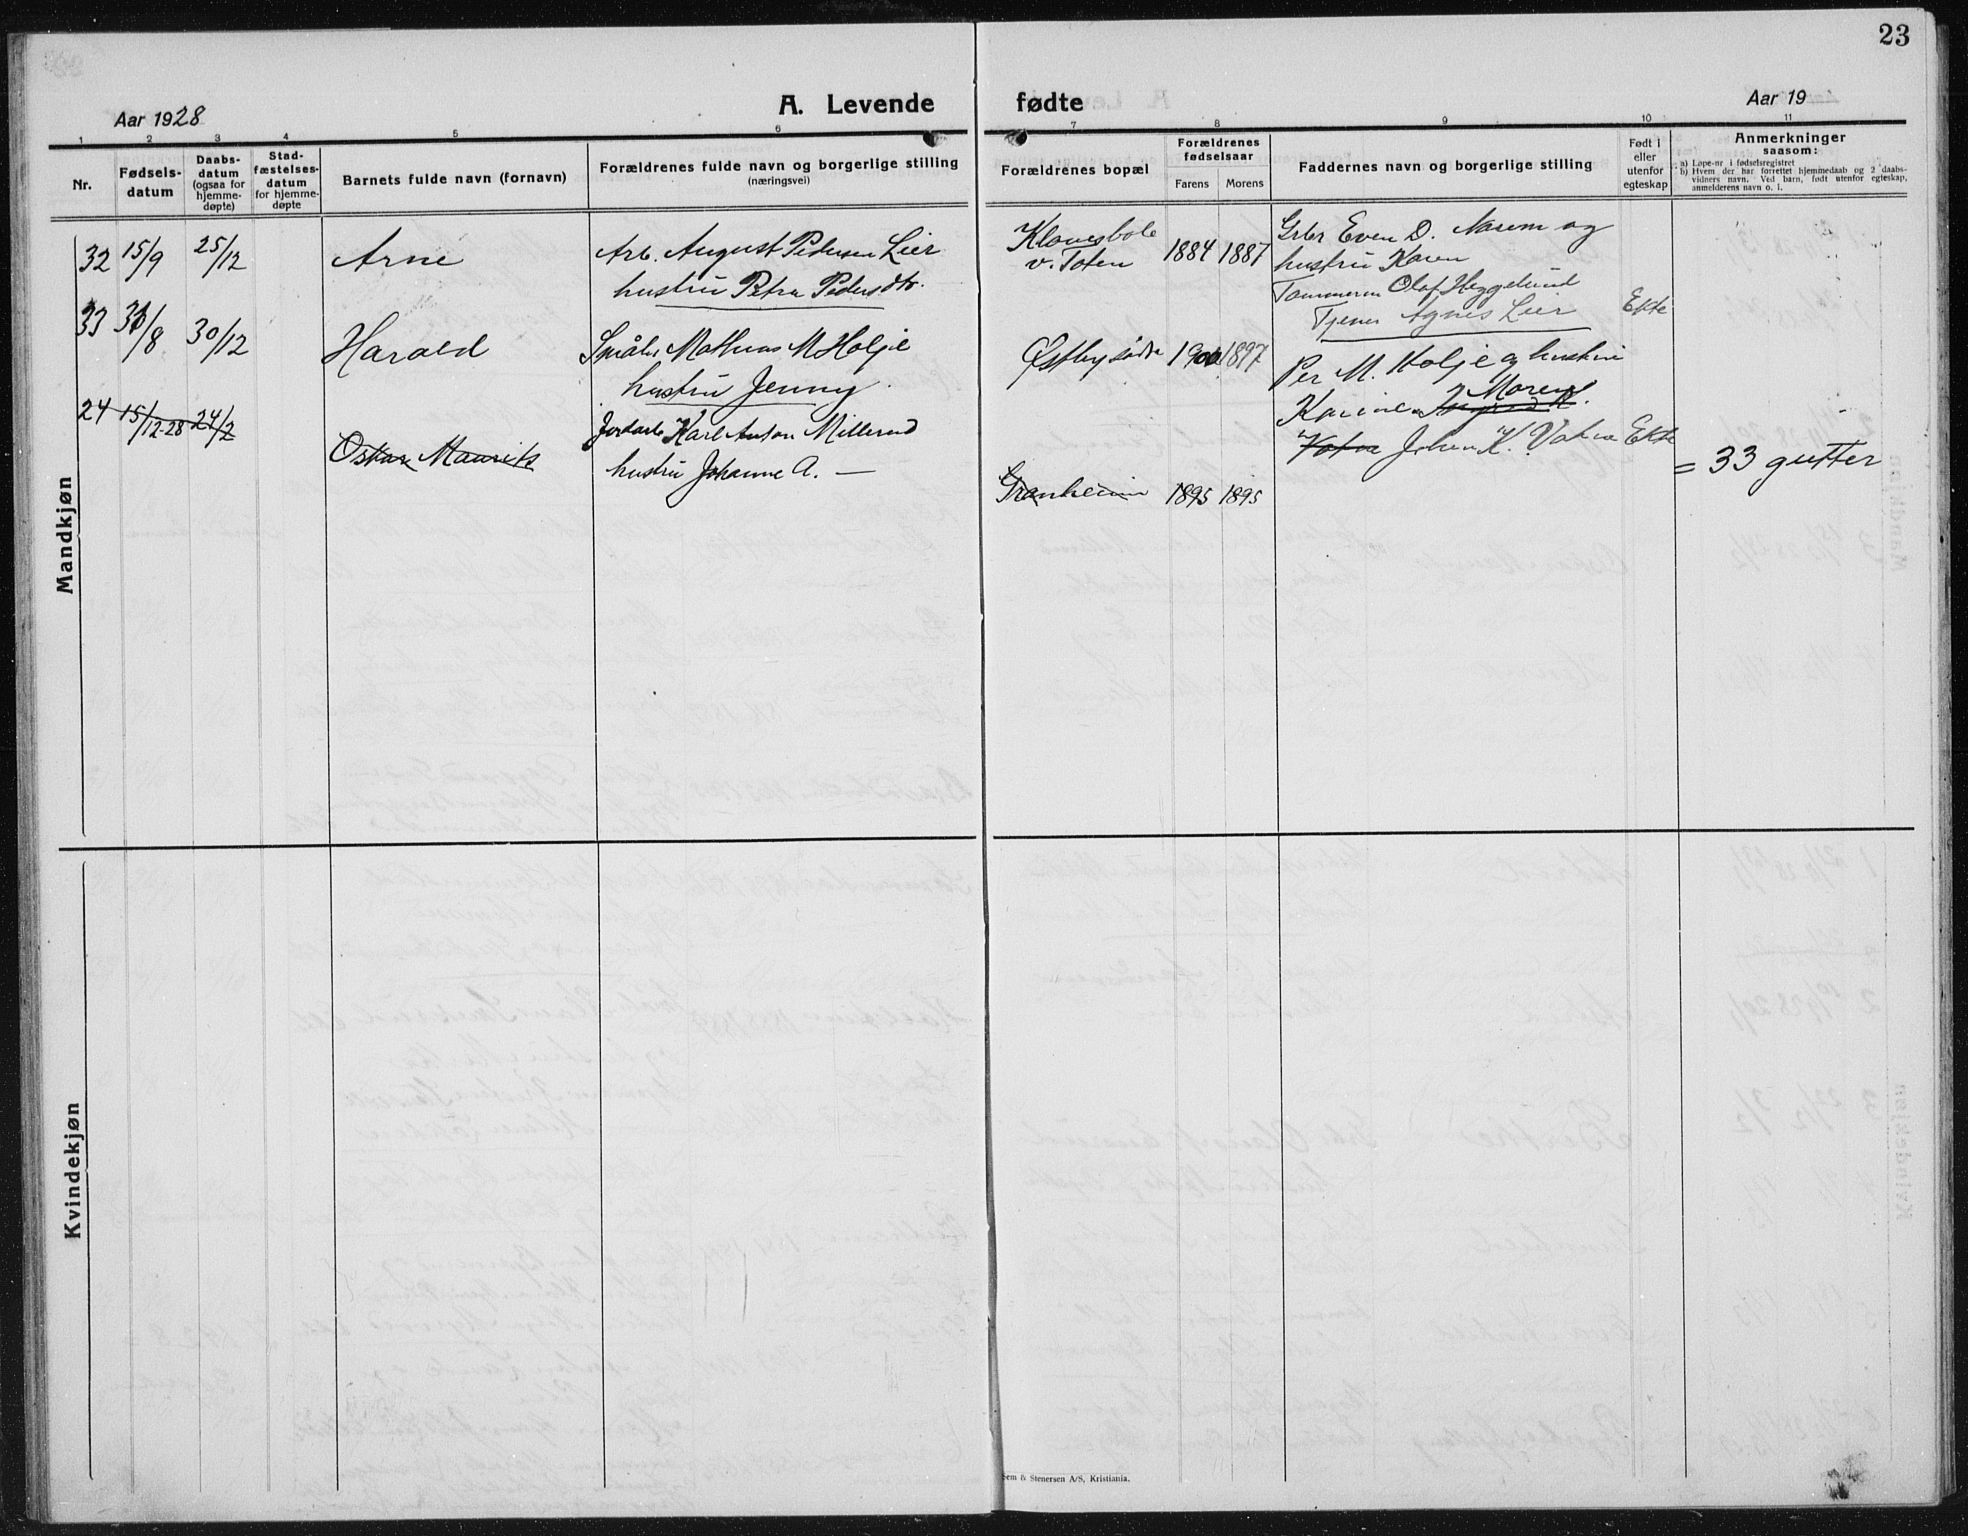 23
A. Levende fødte
Aar 1928
Aar 19
1 2 3 4 5 6 7 8 9 10 11
Nr.
Fødsels-
datum
Daabs-
datum
(ogsaa for
hjemme-
døpte)
Stad-
fæstelses-
datum
for hjemme-
døpte
Barnets fulde navn (fornavn)
Forældrenes fulde navn og borgerlige stilling
(næringsvei)
Forældrenes bopæl
Forældrenes
fødselsaar
Farens Morens
Faddernes navn og borgerlige stilling
Født i
eller
utenfor
egteskap
Anmerkninger
saasom:
a) Løpe-nr i fødselsregistret
b) Hvem der har forrettet hjemmedaab og 2 daabs-
vidners navn. Ved barn, født utenfor egteskap,
anmelderens navn o. l.
Mandkjøn
32 15/9 25/12 Arne
Arb. August Pedersen Lier
hustru Petra Pedersdtr.
v. Toten
1884 1887
Even D. og
hustru Karen
Olaf Heggelund
Tjener Agnes Lier
Ekte
33 31/8 30/12 Harald
Småbr. Mathias M Holje
hustru Jenny
Østby søndre 1900 1897
Per M. Holje og hustru
Karine Maren
Johan K. Ekte
24 15/12-28 24/2
Oskar Maurits
Jordarb. Karl Anton Millerud
hustru Johanne A. —
Granheim 1895 1895
= 33 gutter
Kvindekjøn
Sem & Stenersen A/S, Kristiania.